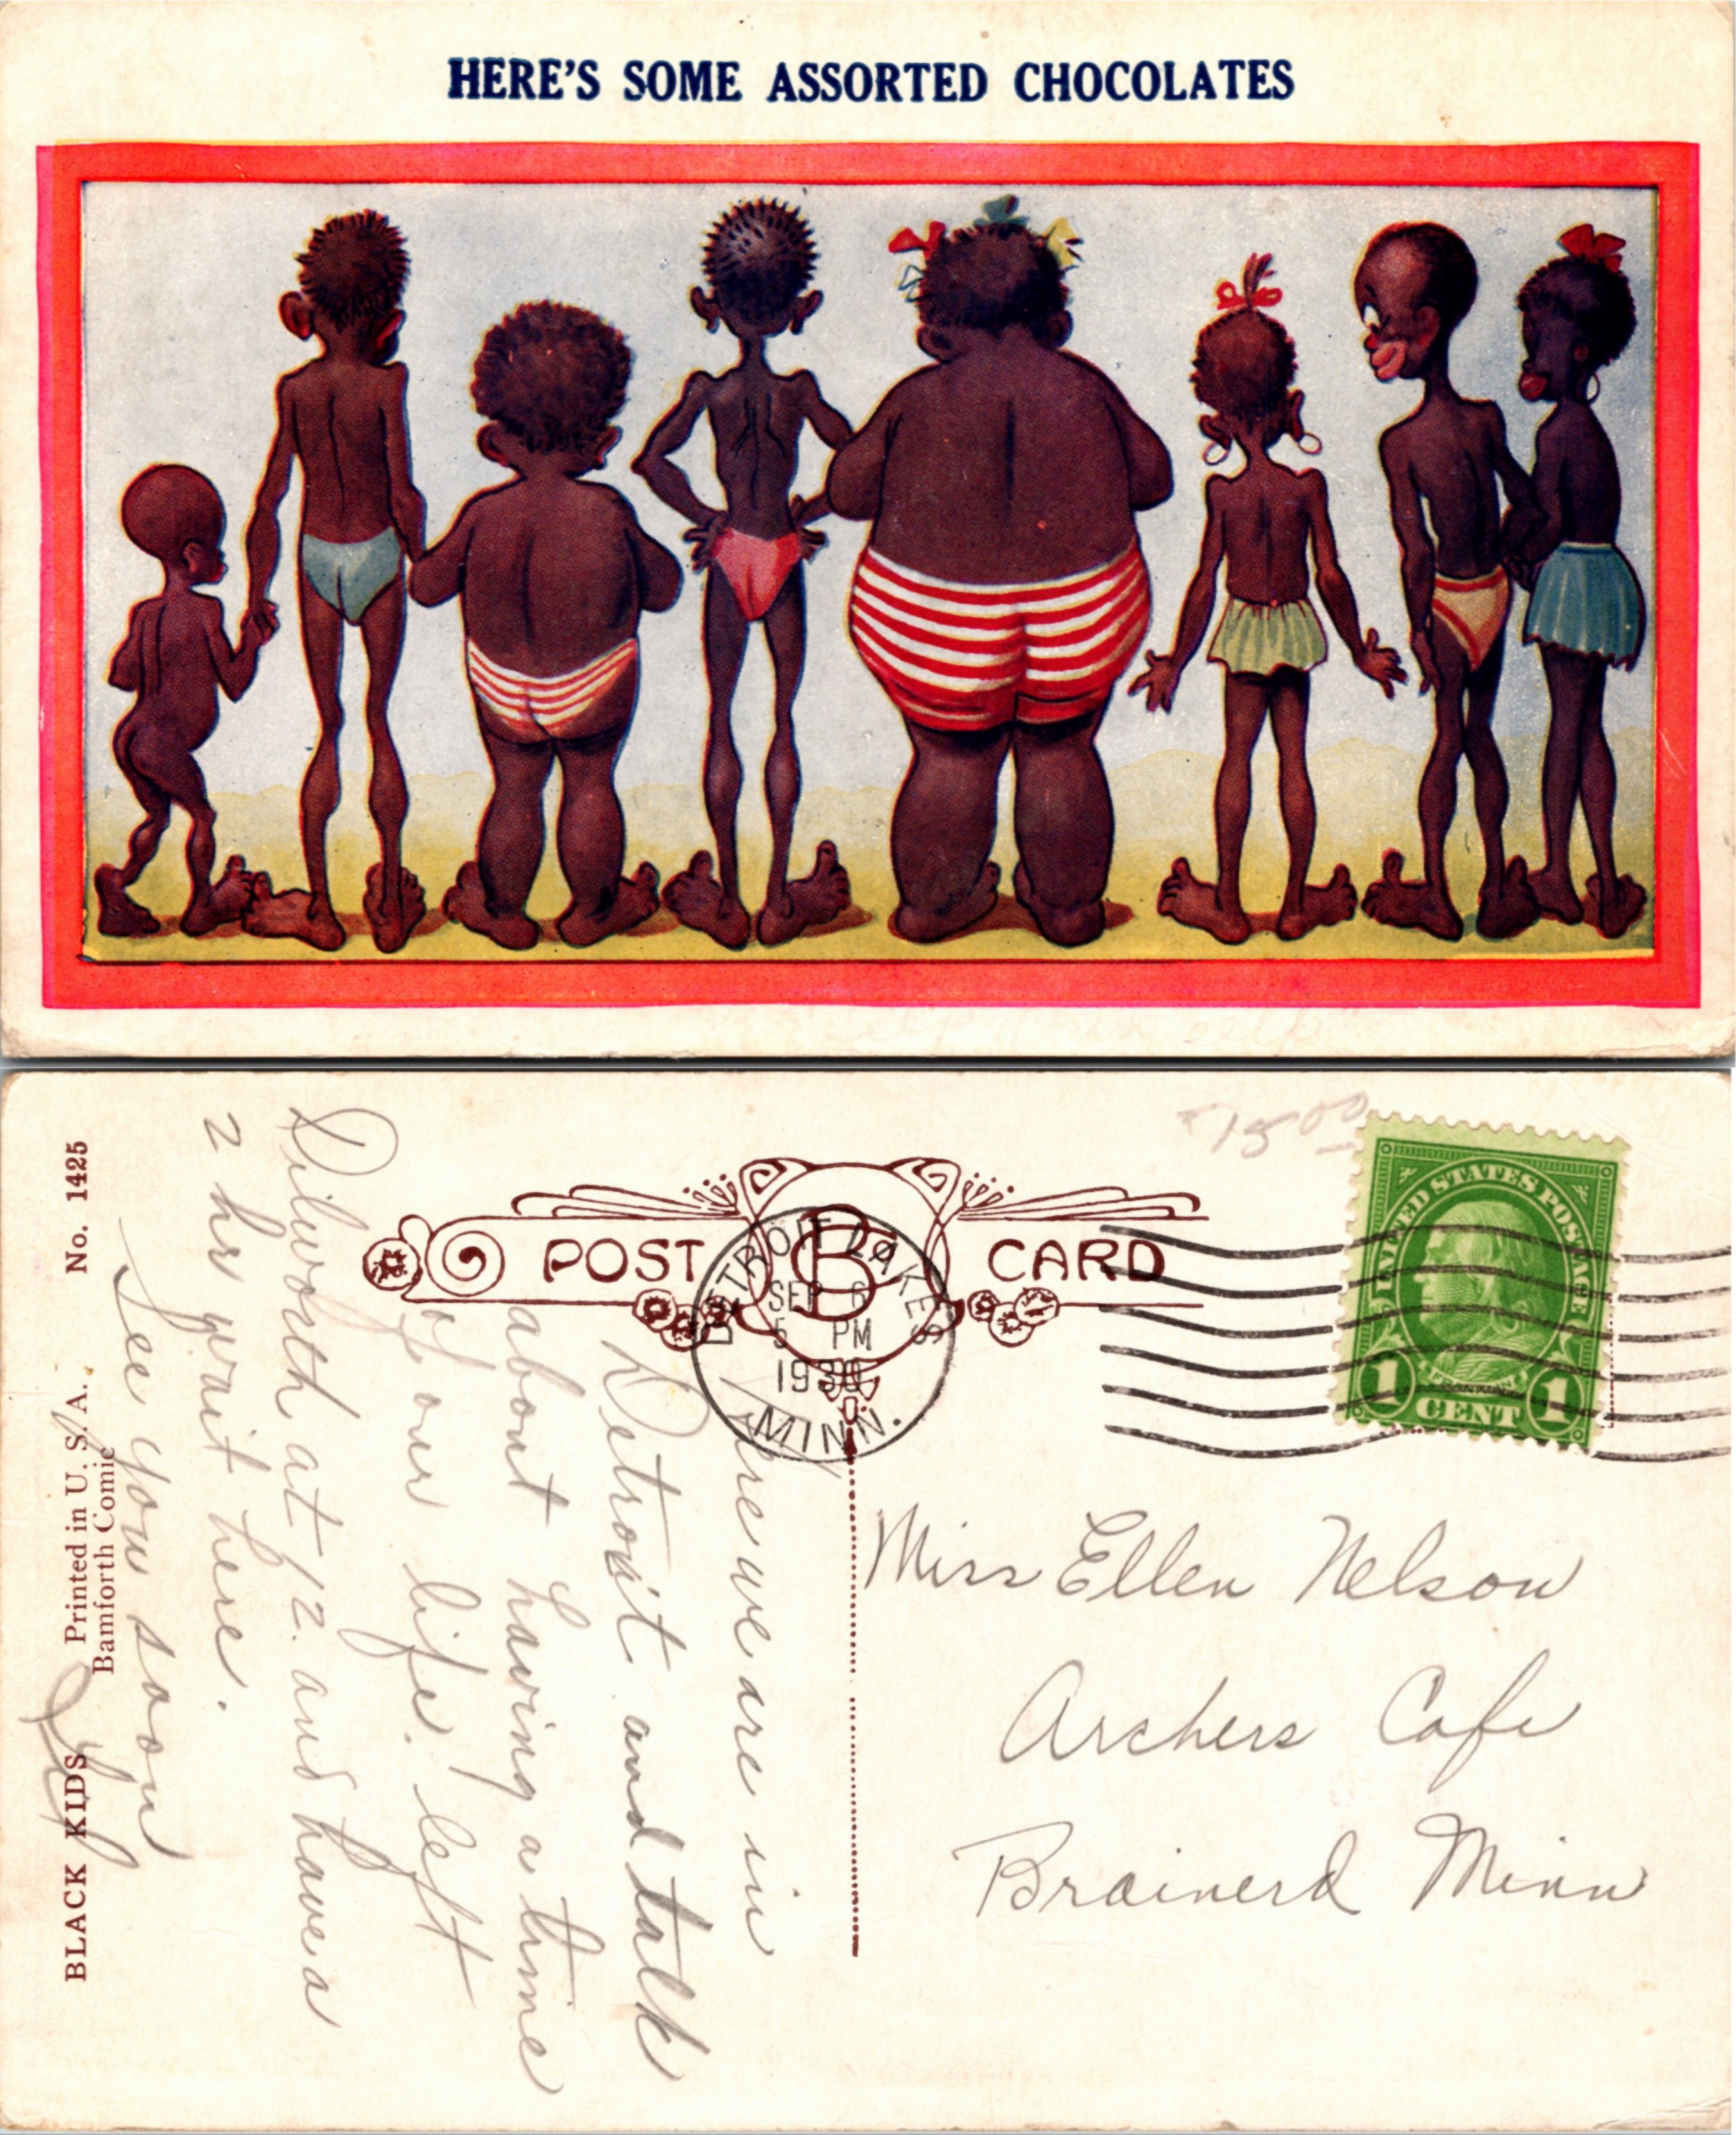 HERE'S SOME ASSORTED CHOCOLATES
$15.00
POST CARD
B
DETROIT LAKES
SEP 6
5 PM
1930
MINN.
UNITED STATES POSTAGE
FRANKLIN
1 CENT 1
Here we are in
Detroit and talk
about having a time
of our life! left
Dilworth at 12. and have a
2 hr wait here.
See you soon
Miss Ellen Nelson
Archers Cafe
Brainerd Minn
BLACK KIDS Printed in U. S. A. No. 1425
Bamforth Comic